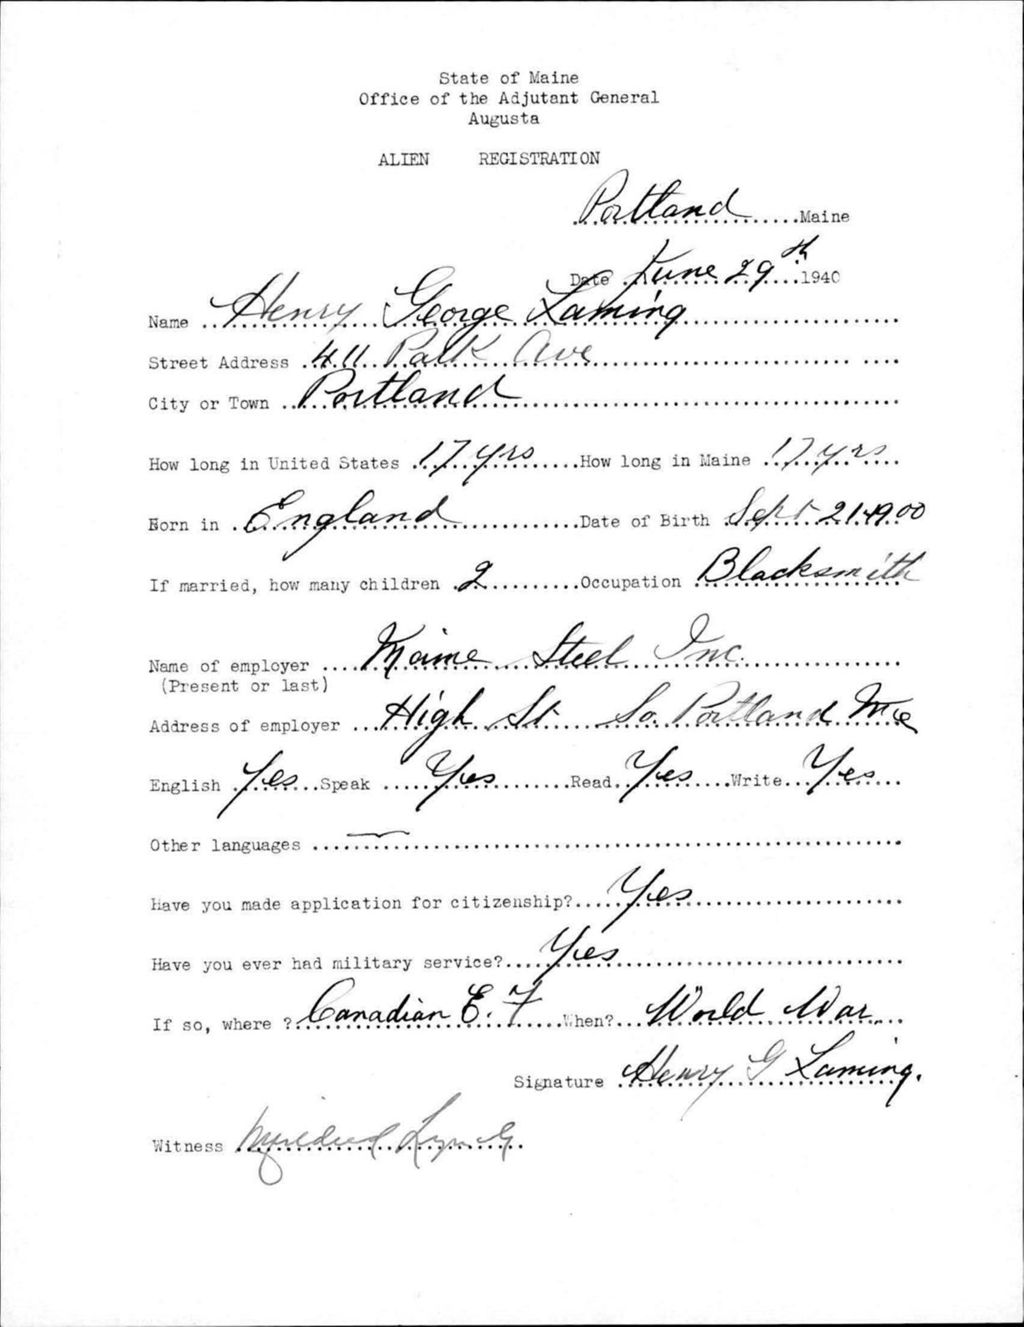 State of Maine
Office of the Adjutant General
Augusta
ALIEN REGISTRATION
Portland Maine
Date June 29th 1940
Name Henry George Laming
Street Address 411 Park Ave
City or Town Portland
How long in United States 17 yrs How long in Maine 17 yrs
Born in England Date of Birth Sept 21-1900
If married, how many children 2 Occupation Blacksmith
Name of employer Maine Steel Inc.
(Present or last)
Address of employer High St So. Portland Me
English Yes Speak Yes Read Yes Write Yes
Other languages —
Have you made application for citizenship? Yes
Have you ever had military service? Yes
If so, where? Canadian E. F When? World War
Signature Henry G Laming.
Witness Mildred Lynch